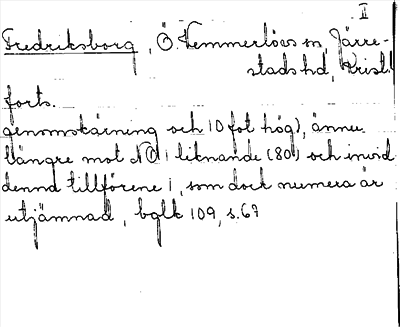 II
Fredriksborg, Ö. Vemmerlövs sn, Järre-
stads hd, Krist.
forts.
genomskärning och 10 fot hög), ännu
längre mot N (?) 1 liknande (80') och invid
denna tillförene 1, som dock numera är
utjämnad, bglk 109, s. 67